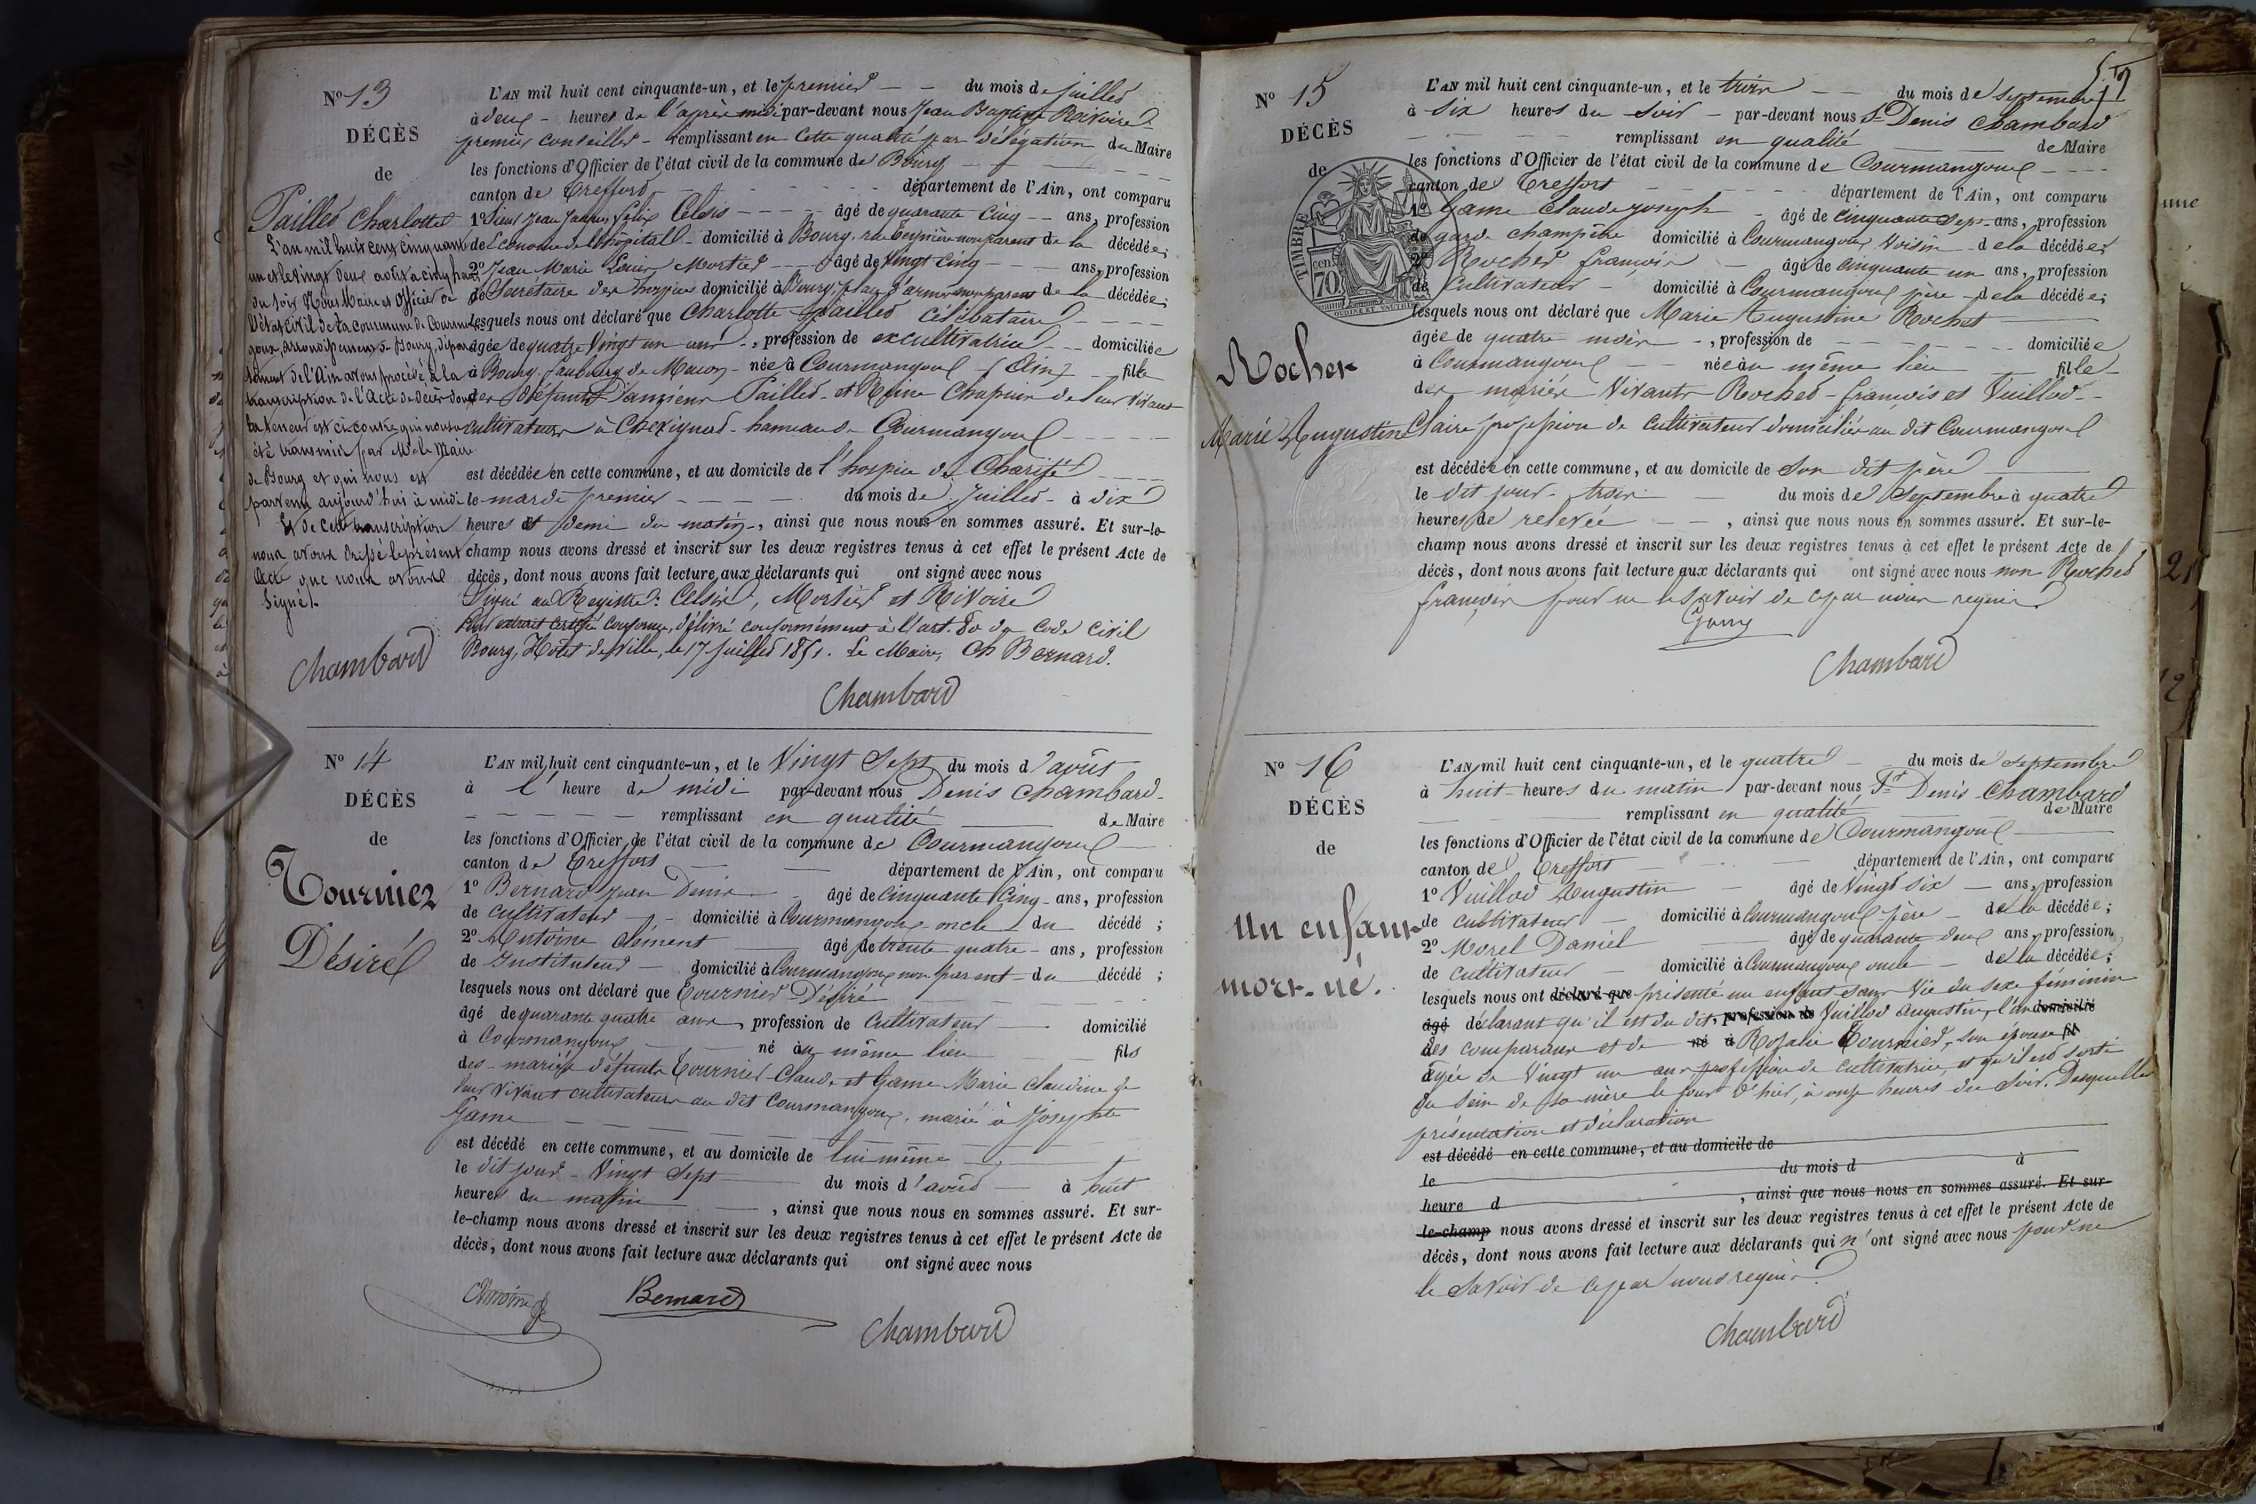 N° 13
DÉCÈS
de
Paillet Charlotte
L'an mil huit cent cinquante
un et le vingt deux août à cinq heures
du soir Nous Maire et Officier de
l'état civil de la commune de Courman
goux, arrondissement de Bourg, dépar
tement de l'Ain avons procédé à la
transcription de l'Acte de décès dont
la teneur est ci-contre qui nous a
été transmis par Mr le Maire
de Bourg et qui nous est
parvenu aujourd'hui à midi
Et de cette transcription
nous avons dressé le présent
acte que nous avons
signé.
Chambard
L'AN mil huit cent cinquante-un, et le premier du mois de juillet
à deux heures de l'après midi par-devant nous Jean Baptiste Rivoire
premier conseiller remplissant en cette qualité par délégation du Maire
les fonctions d'Officier de l'état civil de la commune de Bourg
canton de Treffort département de l'Ain, ont comparu
1° Sieur Jean Jacques Félix Celsis âgé de quarante cinq ans, profession
de Econome de l'hôpital domicilié à Bourg, rue non parent de la décédée;
2° Jean Marie Louis Mortier âgé de vingt cinq ans, profession
de Secrétaire des hospices domicilié à Bourg, place d'armes non parent de la décédée;
lesquels nous ont déclaré que Charlotte Paillet célibataire
âgée de quatre vingt un ans, profession de excultivatrice domiciliée
à Bourg, faubourg de Macon née à Courmangoux (Ain) fille
des défunts Paillet et Reine Chapuis de leur vivant
cultivateurs à Chevignat hameau de Courmangoux
est décédée en cette commune, et au domicile de l'hospice de Charité
le mardi premier du mois de Juillet à dix
heures et demi du matin, ainsi que nous nous en sommes assuré. Et sur-le-
champ nous avons dressé et inscrit sur les deux registres tenus à cet effet le présent Acte de
décès, dont nous avons fait lecture aux déclarants qui ont signé avec nous
Signé au Registre: Celsis, Mortier et Rivoire
Pour extrait certifié conforme, délivré conformément à l'art. 80 du code civil
Bourg, Hôtel de Ville, le 17 juillet 1851. Le Maire, Ch Bernard.
Chambard
N° 14
DÉCÈS
de
Tournier
Désiré
L'AN mil huit cent cinquante-un, et le Vingt Sept du mois d'août
à l'heure de midi par-devant nous Denis Chambard
remplissant en qualité de Maire
les fonctions d'Officier de l'état civil de la commune de Courmangoux
canton de Treffort département de l'Ain, ont comparu
1° Bernard Jean Denis âgé de cinquante cinq ans, profession
de cultivateur domicilié à Courmangoux oncle du décédé;
2° Antoine Clément âgé de trente quatre ans, profession
de Instituteur domicilié à Courmangoux non parent du décédé;
lesquels nous ont déclaré que Tournier Désiré
âgé de quarante quatre ans, profession de Cultivateur domicilié
à Courmangoux né au même lieu fils
des mariés défunts Tournier Claude et Game Marie Claudine de
leur vivant cultivateurs au dit Courmangoux, marié à Josephte
Game
est décédé en cette commune, et au domicile de lui même
le dit jour Vingt Sept du mois d'août à huit
heures du matin, ainsi que nous nous en sommes assuré. Et sur-
le-champ nous avons dressé et inscrit sur les deux registres tenus à cet effet le présent Acte de
décès, dont nous avons fait lecture aux déclarants qui ont signé avec nous
Antoine Bernard
Chambard
N° 15
DÉCÈS
de
TIMBRE
70 cen
Rochet
Marie Augustine
L'AN mil huit cent cinquante-un, et le trois du mois de Septembre
à six heures du soir par-devant nous Sr Denis Chambard
remplissant en qualité de Maire
les fonctions d'Officier de l'état civil de la commune de Courmangoux
canton de Treffort département de l'Ain, ont comparu
1° Game Claude Joseph âgé de cinquante sept ans, profession
de garde champêtre domicilié à Courmangoux voisin de la décédée;
2° Rochet François âgé de cinquante un ans, profession
de Cultivateur domicilié à Courmangoux père de la décédée;
lesquels nous ont déclaré que Marie Augustine Rochet
âgée de quatre mois, profession de domiciliée
à Courmangoux née au même lieu fille
des mariés vivants Rochet François et Vuillod
Claire profession de cultivateur domiciliés au dit Courmangoux
est décédée en cette commune, et au domicile de Son dit père
le dit jour trois du mois de Septembre à quatre
heures de relevée, ainsi que nous nous en sommes assuré. Et sur-le-
champ nous avons dressé et inscrit sur les deux registres tenus à cet effet le présent Acte de
décès, dont nous avons fait lecture aux déclarants qui ont signé avec nous non Rochet
François pour ne le savoir de ce par nous requis
Game
Chambard
N° 16
DÉCÈS
de
Un enfant
mort-né.
L'AN mil huit cent cinquante-un, et le quatre du mois de Septembre
à huit heures du matin par-devant nous Sr Denis Chambard
remplissant en qualité de Maire
les fonctions d'Officier de l'état civil de la commune de Courmangoux
canton de Treffort département de l'Ain, ont comparu
1° Vuillod Augustin âgé de Vingt six ans, profession
de cultivateur domicilié à Courmangoux père de la décédée;
2° Morel Daniel âgé de quarante deux ans, profession
de cultivateur domicilié à Courmangoux oncle de la décédée;
lesquels nous ont déclaré que présenté un enfant sans vie du sexe féminin
âgé déclarant qu'il est du dit, profession de Vuillod Augustin, l'un domicilié
des comparans et de né à Rosalie Tournier, son épouse fil
âgée de Vingt un ans profession de cultivatrice, et qu'il est sorti
du sein de sa mère le jour d'hier, à onze heures du soir. Desquelles
présentation et déclaration
est décédé en cette commune, et au domicile de
le du mois d à
heure d , ainsi que nous nous en sommes assuré. Et sur-
le-champ nous avons dressé et inscrit sur les deux registres tenus à cet effet le présent Acte de
décès, dont nous avons fait lecture aux déclarants qui n'ont signé avec nous pour ne
le savoir de ce par nous requis
Chambard